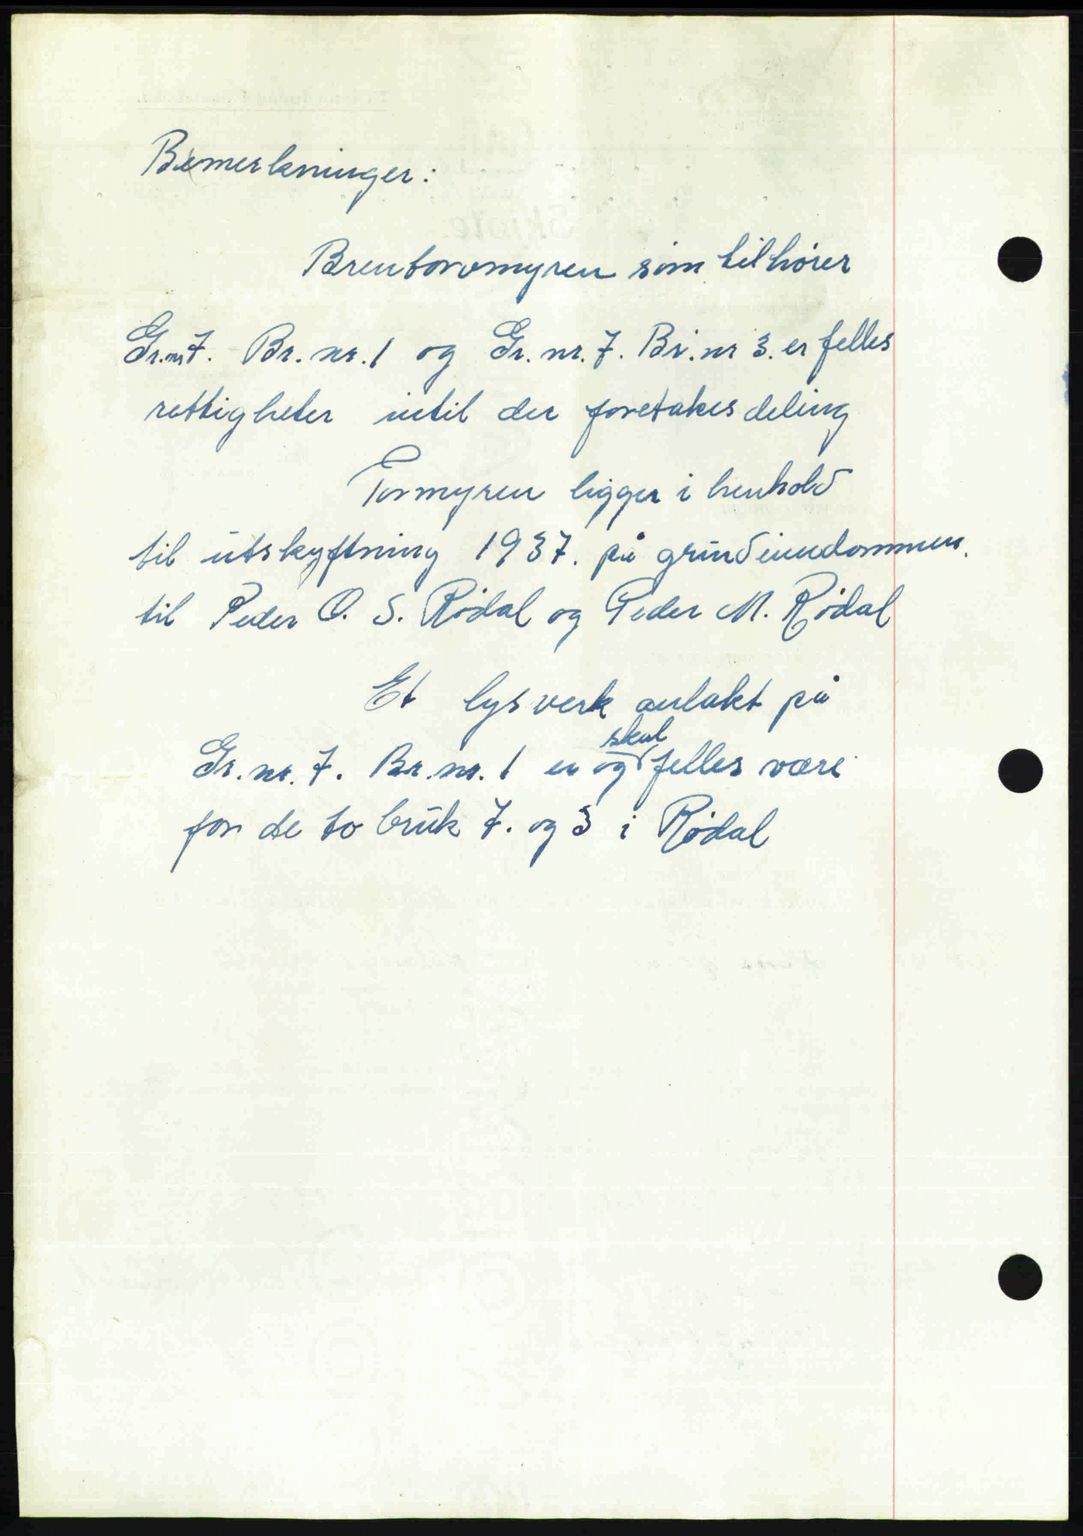 Bemerkninger:
Brentorvmyren som tilhører
Gr.nr 7. Br. nr. 1 og Gr. nr. 7. Br. nr 3. er felles
rettigheter intil der foretakes deling
Torvmyren ligger i henhold
til utskyftning 1937. på grundeiendommen.
til Peder O. S. Rødal og Peder M. Rødal
Et lysverk anlakt på
skal
Gr. nr. 7. Br. nr. 1 er og felles være
for de to bruk 7. og 3 i Rødal